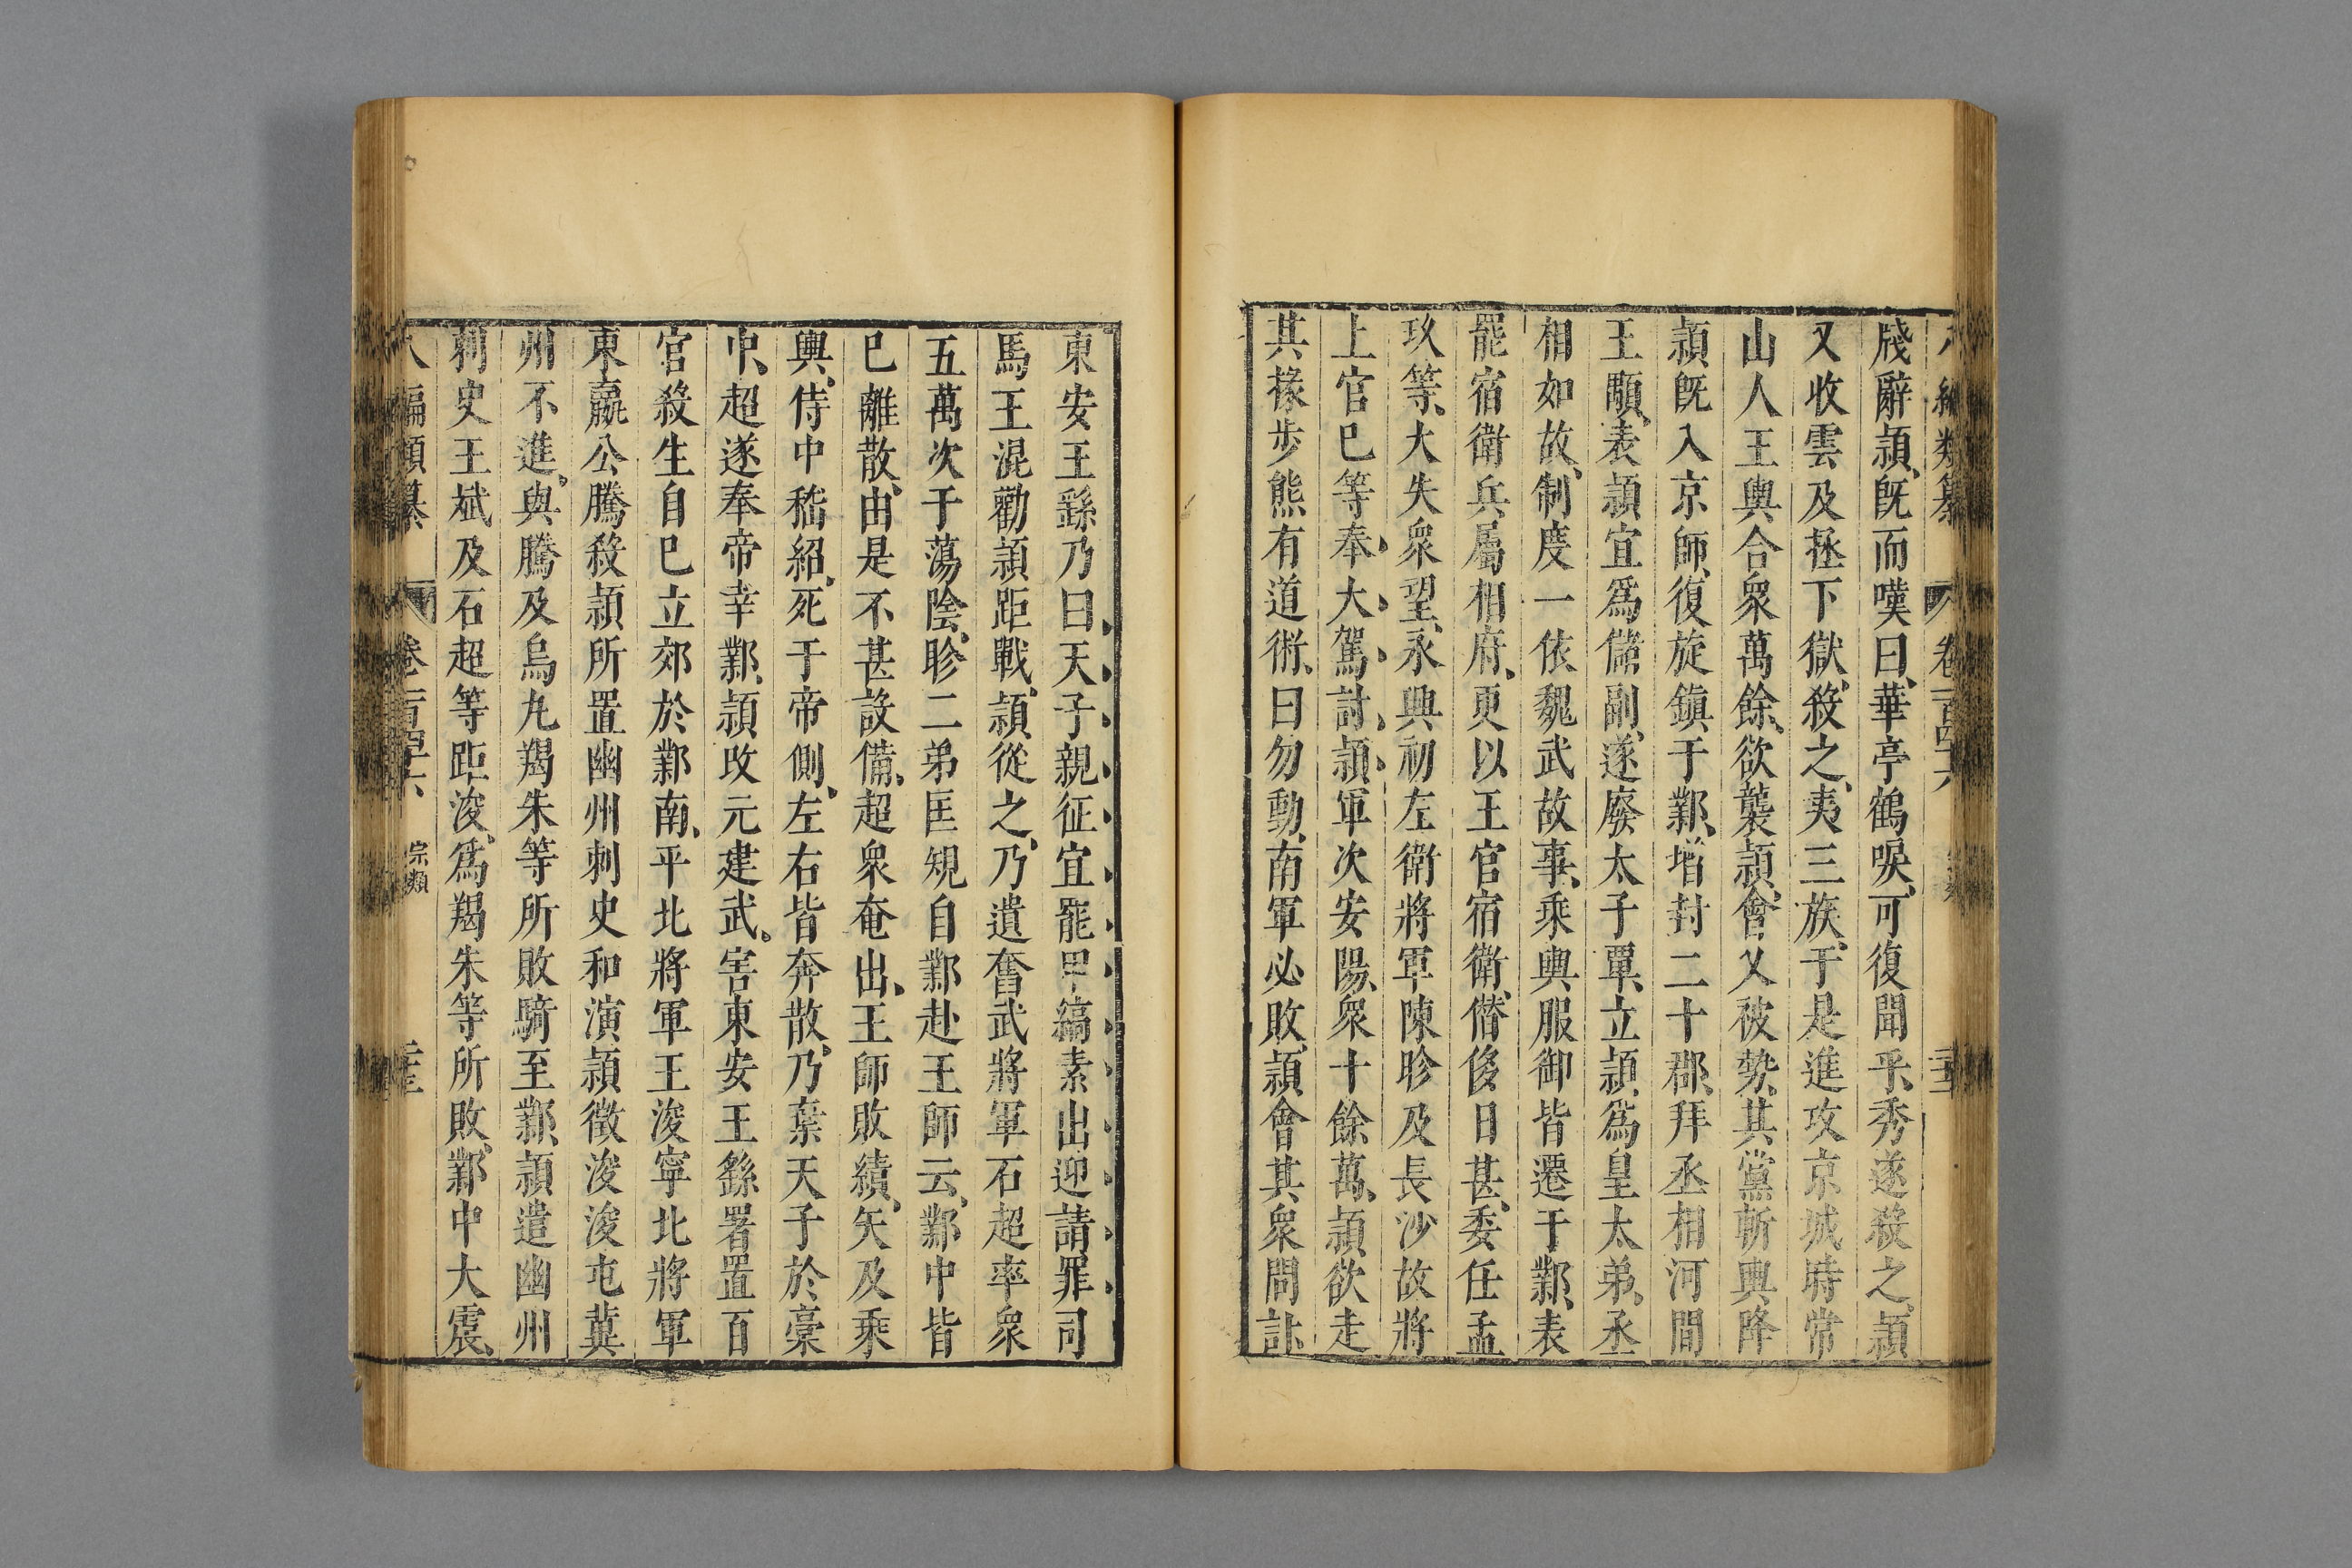 八編類纂 卷一百四十六
牋辭穎、旣而嘆曰、華亭鶴唳、可復聞乎、秀遂殺之、穎
又收雲及拯下獄、殺之、夷三族、于是進攻京城時常
山人王輿合衆萬餘、欲襲穎、會乂被勢、其黨斬輿降
穎旣入京師、復旋鎭于鄴、增封二十郡、拜丞相河間
王顒、表穎宜爲儲副、遂廢太子覃、立穎、爲皇太弟、丞
相如故、制度一依魏武故事、乘輿服御皆遷于鄴、表
罷宿衛兵屬相府、更以王官宿衛、僭侈日甚、委任孟
玖等、大失衆望、永興初左衛將軍陳眕及長沙故將
上官巳等奉大駕討穎軍次安陽、衆十餘萬、穎欲走
其掾步熊有道術、曰勿動、南軍必敗、穎會其衆問計
東安王繇乃曰天子親征宜罷甲縞素出迎請罪司
馬王混勸穎距戰、穎從之、乃遣奮武將軍石超率衆
五萬次于蕩陰、眕二弟匡規自鄴赴王師云、鄴中皆
巳離散、由是不甚設備、超衆奄出、王師敗績、矢及乘
輿、侍中嵇紹、死于帝側、左右皆奔散、乃棄天子於藁
中、超遂奉帝幸鄴、穎改元建武、害東安王繇署置百
官殺生自巳立郊於鄴南、平北將軍王浚寧北將軍
東嬴公騰殺穎所置幽州刺史和演穎徵浚浚屯冀
州不進、與騰及烏丸羯朱等所敗騎至鄴、穎遣幽州
刺史王斌及石超等距浚、爲羯朱等所敗、鄴中大震、
八編類纂 卷一百四十六 宗類